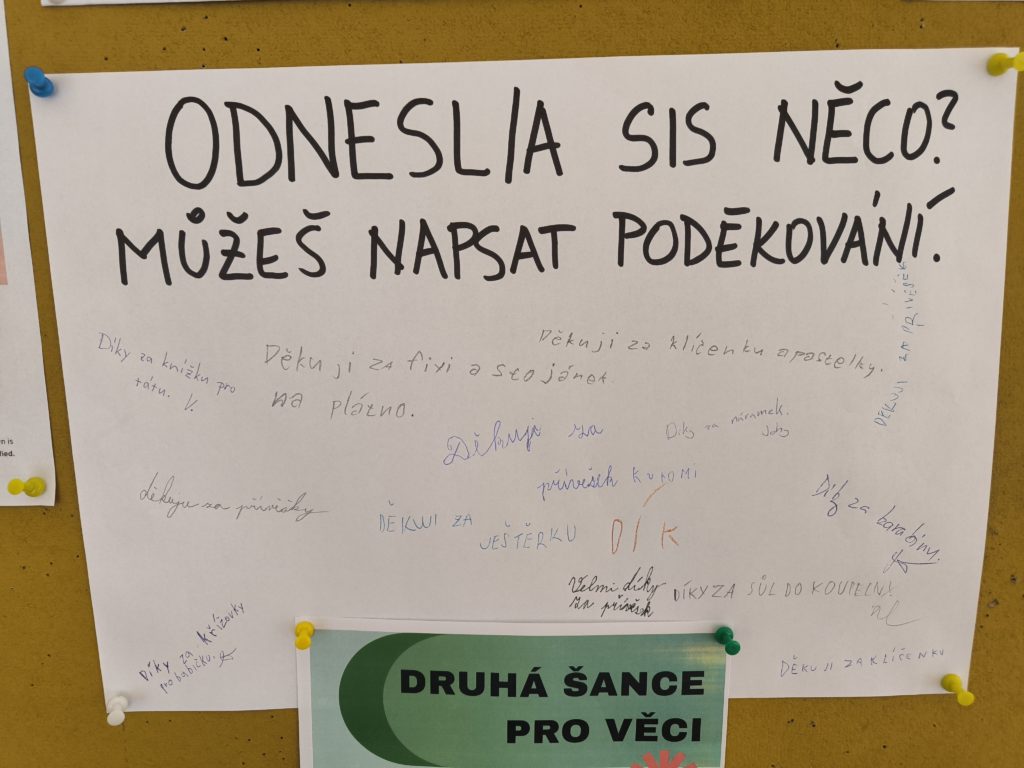 ODNESL/A SIS NĚCO?
MŮŽEŠ NAPSAT PODĚKOVÁNÍ.
DĚKUJI ZA PŘÍVĚSEK
Děkuji za klíčenku a pastelky.
Díky za knížku pro
tátu. V.
Děkuji za fixi a stojánek
na plátno.
Díky za náramek.
Děkuji za
přívěsek KUROMI
děkuju za přívěšky
DĚKUJI ZA
JEŠTĚRKU
DÍK
Díky za karabinu.
Velmi díky
za přívěsek
DÍKY ZA SŮL DO KOUPELNY
Díky za křížovky
pro babičku.
DĚKUJI ZA KLÍČENKU
DRUHÁ ŠANCE
PRO VĚCI